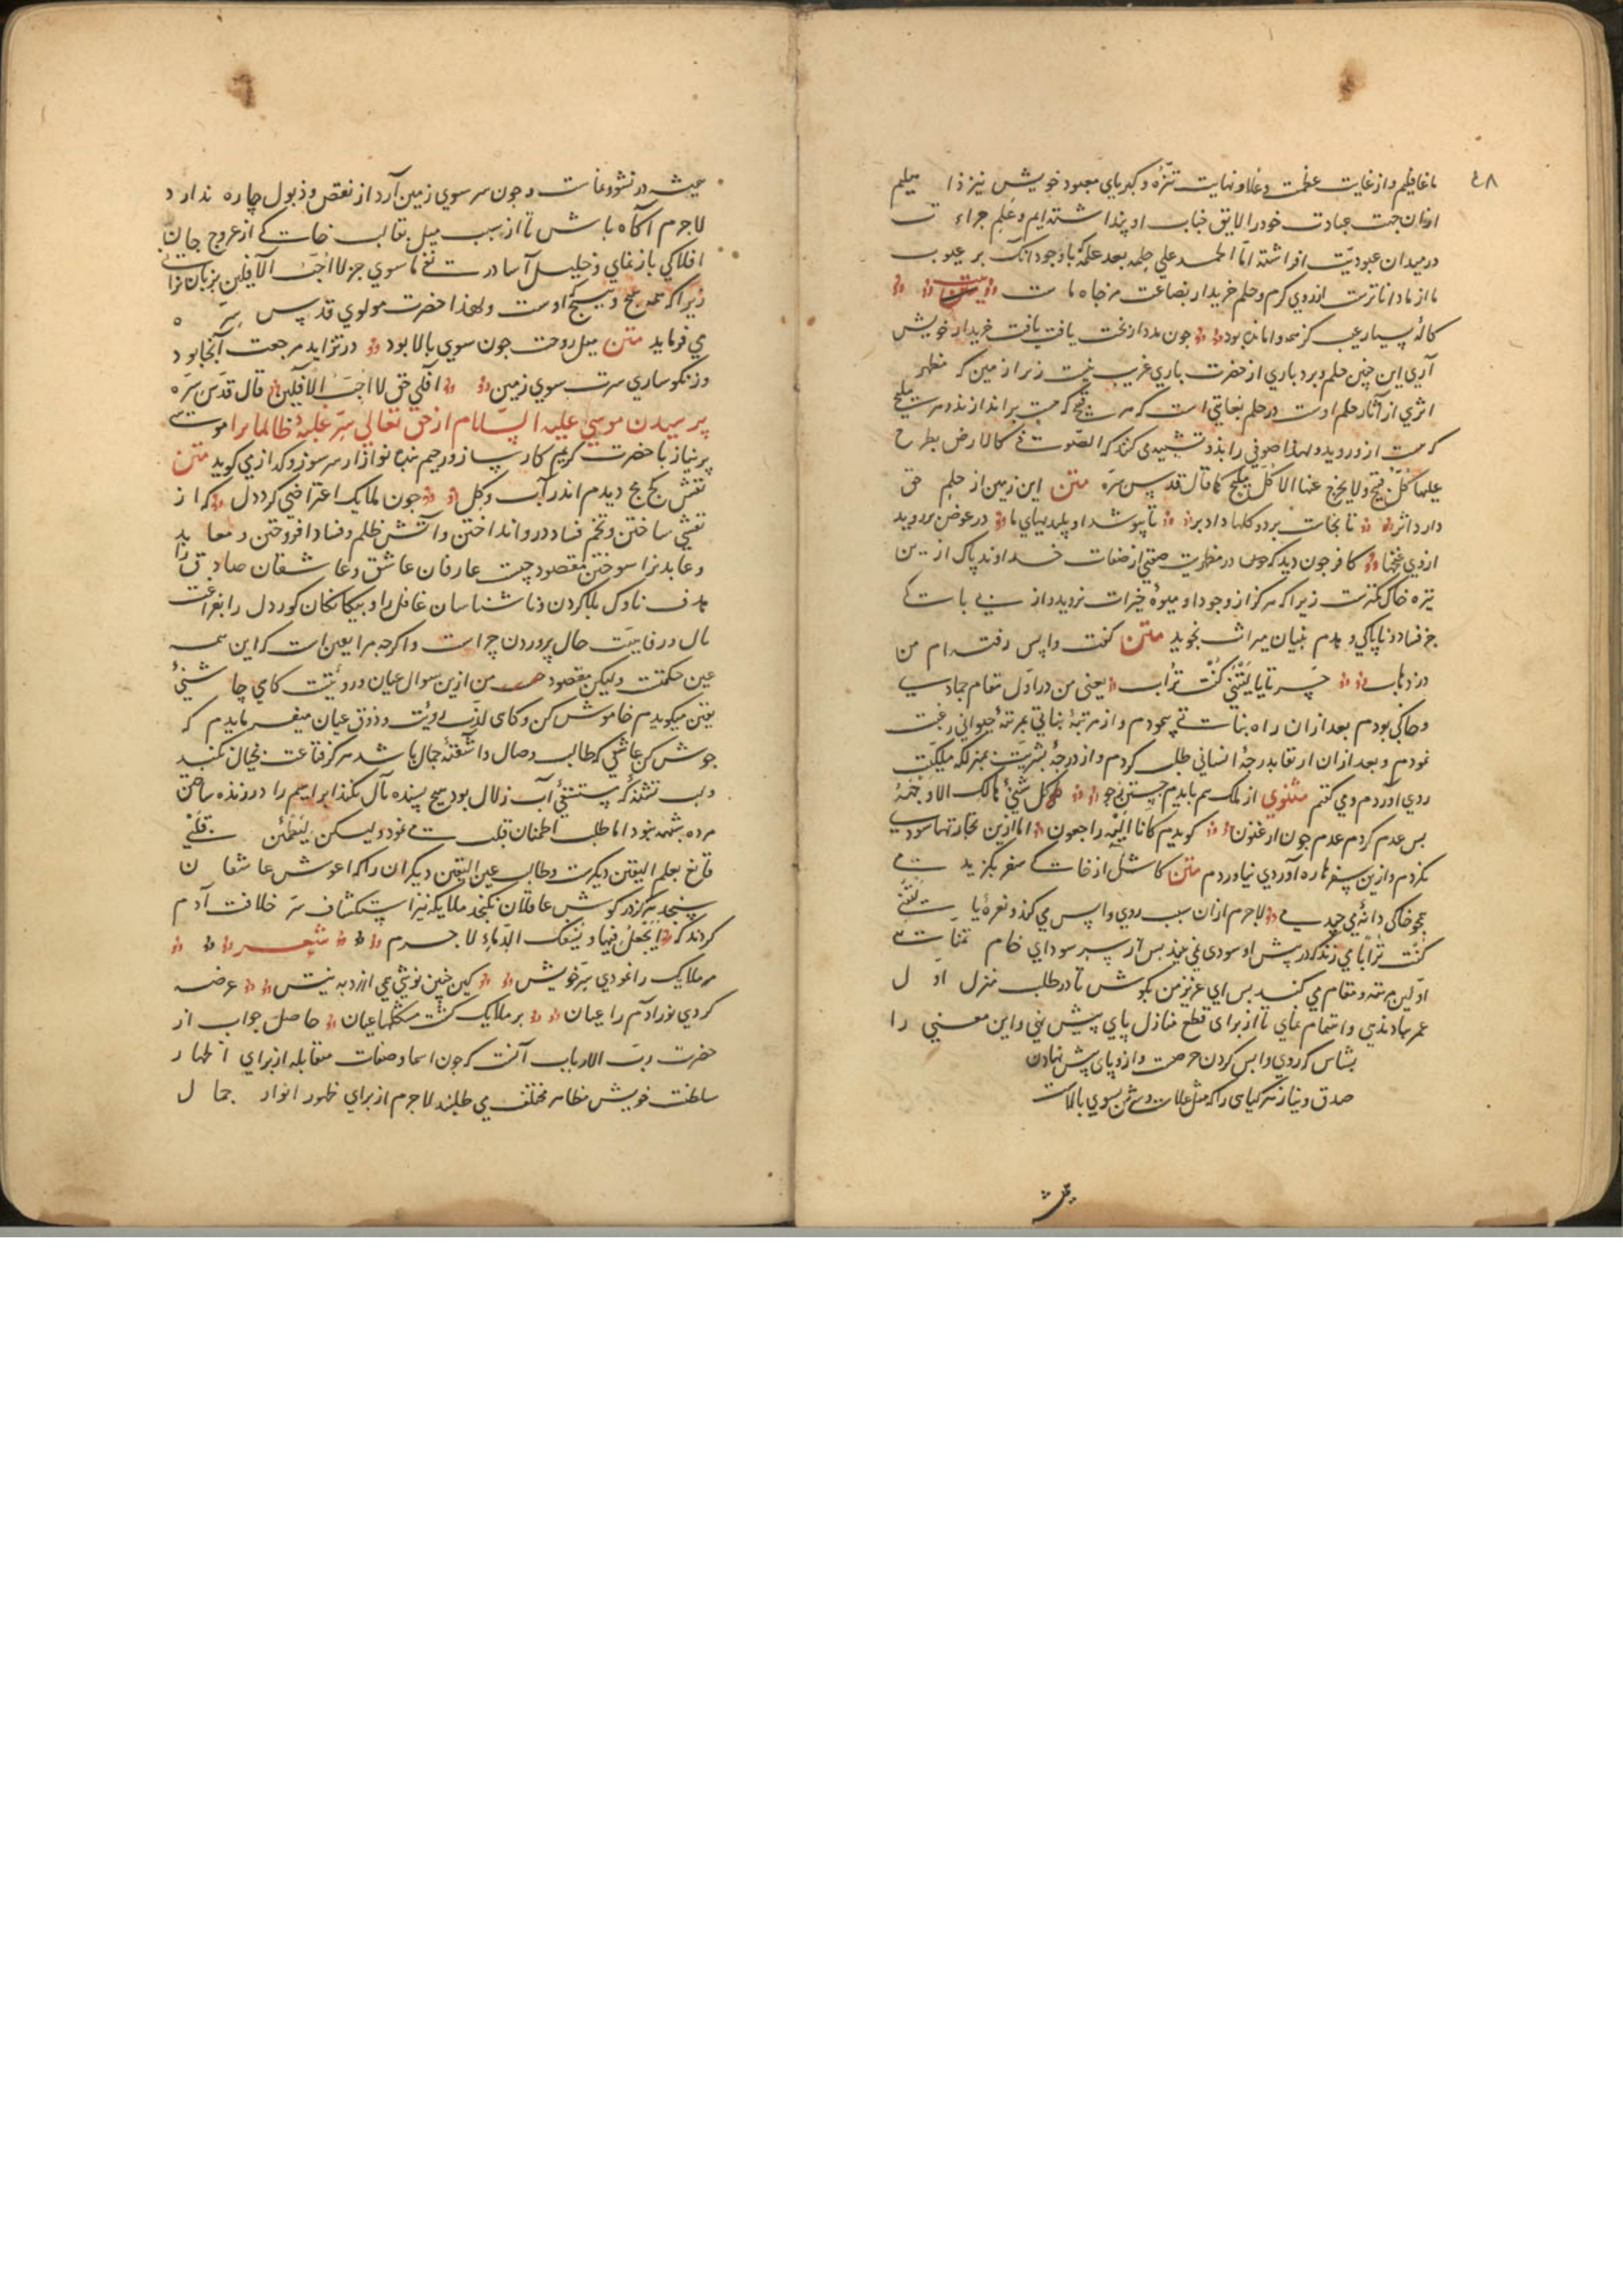 ٤٨
ما غافلیم و از غایت عظمت و علا و نهایت تنزّه و کبریای معبود خویش نیز
از آن جهت عبادت خود را لایق جناب او پنداشته ایم و علم جراءت
در میدان عبودیت افراشته امّا الحمد علی حلمه بعد علمه که با وجود آنک بر عیوب
ما از ما داناترست از روی کرم و حلم خریدار بضاعت مزجاة ماست
کاله بسیار عیب بود خریدار خویش
آری این چنین حلم و بردباری از حضرت باری غریب نیست زیرا زمین که مظهر
اثری از آثار حلم اوست در حلم بغایتی است که هر قبیح که بر اندازند و هر ملیح
که هست از و روید و لهذا صوفی را بدو تشبیه می کنند که الصوفی کالارض یطرح
علیها کلّ قبیح و لا یخرج عنها الا کلّ ملیح کما قال قدّس سرّه متن این زمین از حلم حق
دارد اثر تا نجاست برد و گلها داد بر تا بپوشد او پلیدیهای ما در عوض بر روید
از وی غنچها کافر چون دید که در مظهریت صفتی از صفات خداوند پاک از این
تیره خاک کمترست زیرا که هرگز از وجود او میوۀ خیرات نروید و از بی باکی
جز فساد و ناپاکی و هدم بنیان میراث نجوید متن گفت واپس رفته ام من
در ذهاب حسرتا یا لیتنی کنت تراب یعنی من در اوّل مقام جمادی
و خاکی بودم بعد از آن راه نباتی پیمودم و از مرتبۀ نباتی بمرتبۀ حیوانی رغبت
نمودم و بعد از آن ارتقا بدرجۀ انسانی طلب کردم و از درجۀ بشریت بمنزلۀ ملکیت
روی آوردم و می گفتم مثنوی از ملک هم بایدم جستن ز جو کل شیء هالک الا وجهه
پس عدم گردم عدم چون ارغنون گویدم کانا الیه راجعون اما ازین تجارتها سودی
نکردم و ازین سفرها ره آوردی نیاوردم متن کاش از خاکی سفر نگزیدمی
همچو خاکی دانۀ می چیدمی لاجرم از آن سبب روی واپس می کند و نعرۀ یا لیتنی
کنت ترابا می زند که در پیش او سودی نمی بیند پس از سر سودای خام تمنای
اوّلین مرتبه و مقام می کند پس ای عزیز من بکوش تا در طلب منزل اول
عمر بباد ندهی و اهتمام نمای تا از برای قطع منازل پای پیش نهی و این معنی را
بشناس که روی واپس کردن حرصت و از و پای پیش نهادن
صدق و نیاز هر گیاهی را که میل علاست و سرش بسوی بالاست
عیش در نشو و نماست و چون سر سوی زمین آرد از نقص و ذبول چاره ندارد
لاجرم آگاه باش تا از سبب میل بقالب خاکی از عروج جان
افلاکی باز نمانی و خلیل آسا درست نفی ما سوی جز لا احبّ الآفلین بر زبان نرانی
زیرا که همه هیچ و پیچ اوست و لهذا حضرت مولوی قدّس سرّه
می فرماید متن میل روحت چون سوی بالا بود در تزاید مرجعت آنجا بود
ور نگوساری سرت سوی زمین آفلی حق لا احبّ الآفلین قال قدّس سرّه
پرسیدن موسی علیه السّلام از حق تعالی سرّ غلبۀ ظالمان را موسی
پر نیاز با حضرت کریم کارساز و رحیم بنده نواز از سر سوز و گداز می گوید متن
نقش کج مج دیدم اندر آب و گل چون ملایک اعتراضی کرد دل که از
نقشی ساختن و تخم فساد درو انداختن و آتش ظلم و فساد افروختن و معابد
و عابد را سوختن مقصود چیست عارفان عاشق و عاشقان صادق را
هدف ناوک بلا کردن و ناشناسان غافل را و بیگانگان کور دل را بفراغت
بال و رفاهیت حال پروردن چراست و اگر چه مرا یقین است که این همه
عین حکمتست و لیکن مقصود من ازین سوال عیان و رؤیتست کای چاشنی
یقین میگویدم خاموش کن و کای لذّت رویت و ذوق عیان میفرمایدم که
جوش کن عاشقی که طالب وصال و آشفتۀ جمال باشد هرگز قناعت بخیال نکند
و لب تشنۀ که مستسقی آب زلال بود هیچ بسنده بآل نکند ابراهیم را در زنده ساختن
مرده شبهه نبود اما طلب اطمنان قلب می نمود و لیکن لیطمئن قلبی
قانع بعلم الیقین دیگرست و طالب عین الیقین دیگر آن راکه آغوش عاشقان
سنجد هرگز در گوش عاقلان نگنجد ملایکه نیز استکشاف سرّ خلافت آدم
کردند که أتجعل فیها و یسفک الدّماء لاجرم شعر
مر ملایک را نمودی سرّ خویش کین چنین نوشی همی ارزد به نیش عرضه
کردی نور آدم را عیان بر ملایک گشت مشکلها عیان حاصل جواب از
حضرت ربّ الارباب آنست که چون اسما و صفات متقابله از برای اظهار
سلطنت خویش مظاهر مختلف می طلبند لاجرم از برای ظهور انوار جمال